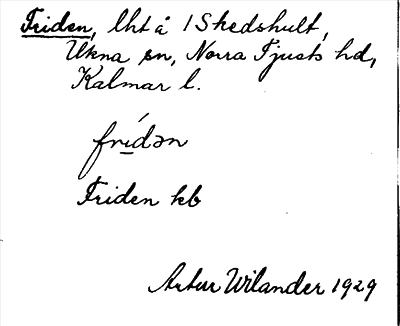 Friden, lht å 1 Skedshult,
Ukna sn, Norra Tjusts hd,
Kalmar l.
frídən
Friden kb
Artur Wilander 1929